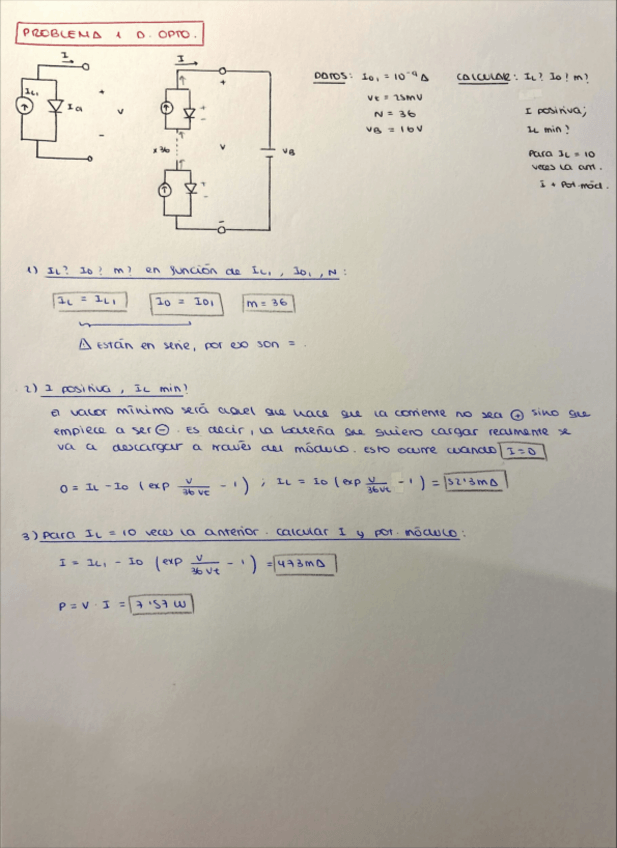 PROBLEMA 1 D. OPTO.
I
IL1
ID1
+
V
-
I
x36
+
V
-
VB
DATOS: I01 = 10⁻⁹A
Vt = 25mV
N = 36
VB = 16V
CALCULAR: IL? I0? m?
I positiva;
IL min?
Para IL = 10
veces la ant.
I + Pot. mód.
1) IL? I0? m? en función de IL1, I01, N:
IL = IL1 I0 = I01 m = 36
Δ Están en serie, por eso son =.
2) I positiva, IL min?
el valor mínimo será aquel que hace que la corriente no sea ⊕ sino que
empiece a ser ⊖. Es decir, la batería que quiero cargar realmente se
va a descargar a través del módulo. Esto ocurre cuando I=0
0 = IL - I0 (exp V/36Vt - 1) ; IL = I0 (exp V/36Vt - 1) = 52'3mA
3) Para IL = 10 veces la anterior. Calcular I y pot. módulo:
I = IL1 - I0 (exp V/36Vt - 1) = 473mA
P = V · I = 7'57 W